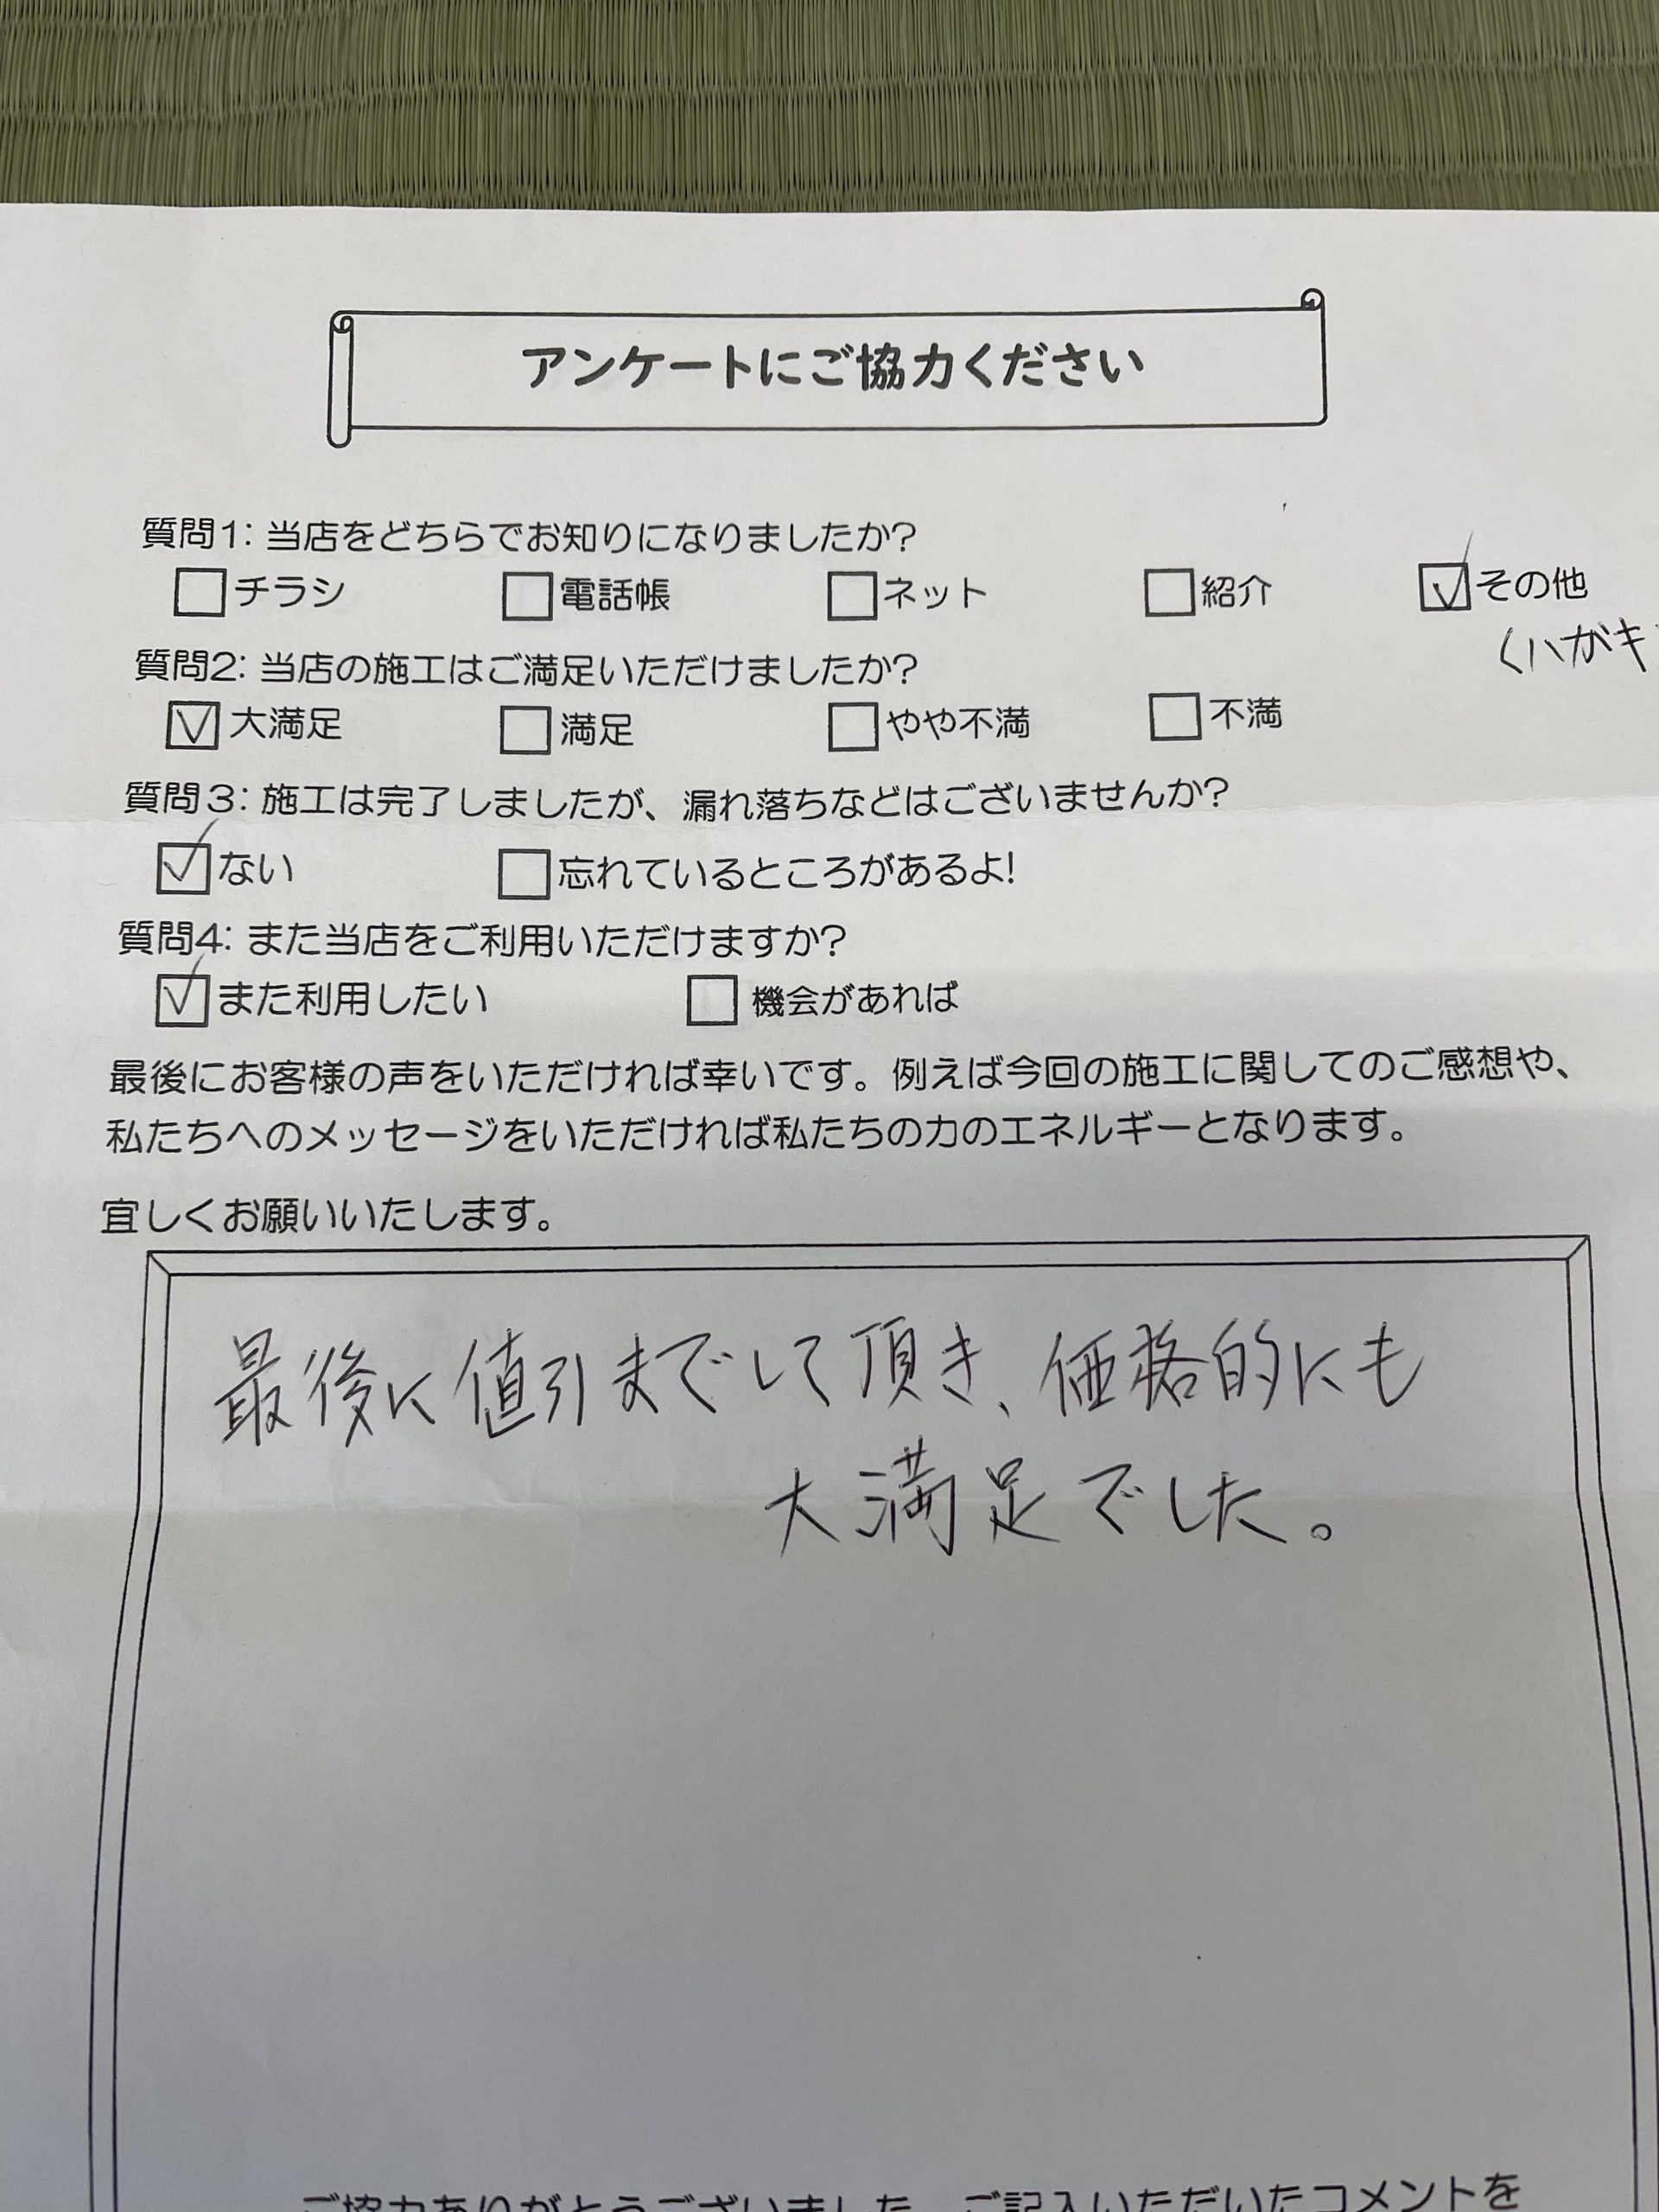 アンケートにご協力ください
質問1: 当店をどちらでお知りになりましたか?
□チラシ □電話帳 □ネット □紹介 ☑その他
(ハガキ
質問2: 当店の施工はご満足いただけましたか?
☑大満足 □満足 □やや不満 □不満
質問3: 施工は完了しましたが、漏れ落ちなどはございませんか?
☑ない □忘れているところがあるよ!
質問4: また当店をご利用いただけますか?
☑また利用したい □機会があれば
最後にお客様の声をいただければ幸いです。例えば今回の施工に関してのご感想や、
私たちへのメッセージをいただければ私たちの力のエネルギーとなります。
宜しくお願いいたします。
最後に値引までして頂き、価格的にも
大満足でした。
ご協力ありがとうございました。ご記入いただいたコメントを